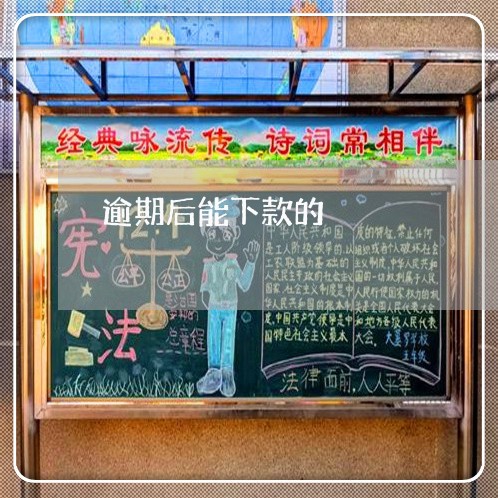 经典咏流传 诗词常相伴
逾期后能下款的
宪
法
公平
公正
总章程
中华人民共和国
是工人阶级领导的,以
工农联盟为基础的
人民民主专政的社会主义
国家。社会主义制度是中
华人民共和国的根本制
度。中国共产党领导是中
国特色社会主义最本
质的特征。禁止任何
组织或者个人破坏社会
主义制度。中华人民共和
国的一切权利属于人民。
人民行使国家权力的机
关是全国人民代表大会
和地方各级人民代表
大会。
学校
五年级
法律面前,人人平等